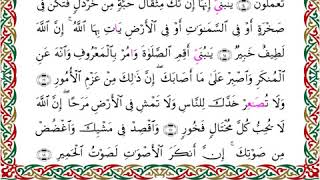 تَعْمَلُونَ ۝ يَٰبُنَىَّ إِنَّهَآ إِن تَكُ مِثْقَالَ حَبَّةٍ مِّنْ خَرْدَلٍ فَتَكُن فِى
صَخْرَةٍ أَوْ فِى ٱلسَّمَٰوَٰتِ أَوْ فِى ٱلْأَرْضِ يَأْتِ بِهَا ٱللَّهُ ۚ إِنَّ ٱللَّهَ
لَطِيفٌ خَبِيرٌ ۝ يَٰبُنَىَّ أَقِمِ ٱلصَّلَوٰةَ وَأْمُرْ بِٱلْمَعْرُوفِ وَٱنْهَ عَنِ
ٱلْمُنكَرِ وَٱصْبِرْ عَلَىٰ مَآ أَصَابَكَ ۖ إِنَّ ذَٰلِكَ مِنْ عَزْمِ ٱلْأُمُورِ ۝
وَلَا تُصَعِّرْ خَدَّكَ لِلنَّاسِ وَلَا تَمْشِ فِى ٱلْأَرْضِ مَرَحًا ۖ إِنَّ ٱللَّهَ
لَا يُحِبُّ كُلَّ مُخْتَالٍ فَخُورٍ ۝ وَٱقْصِدْ فِى مَشْيِكَ وَٱغْضُضْ
مِن صَوْتِكَ ۚ إِنَّ أَنكَرَ ٱلْأَصْوَٰتِ لَصَوْتُ ٱلْحَمِيرِ ۝